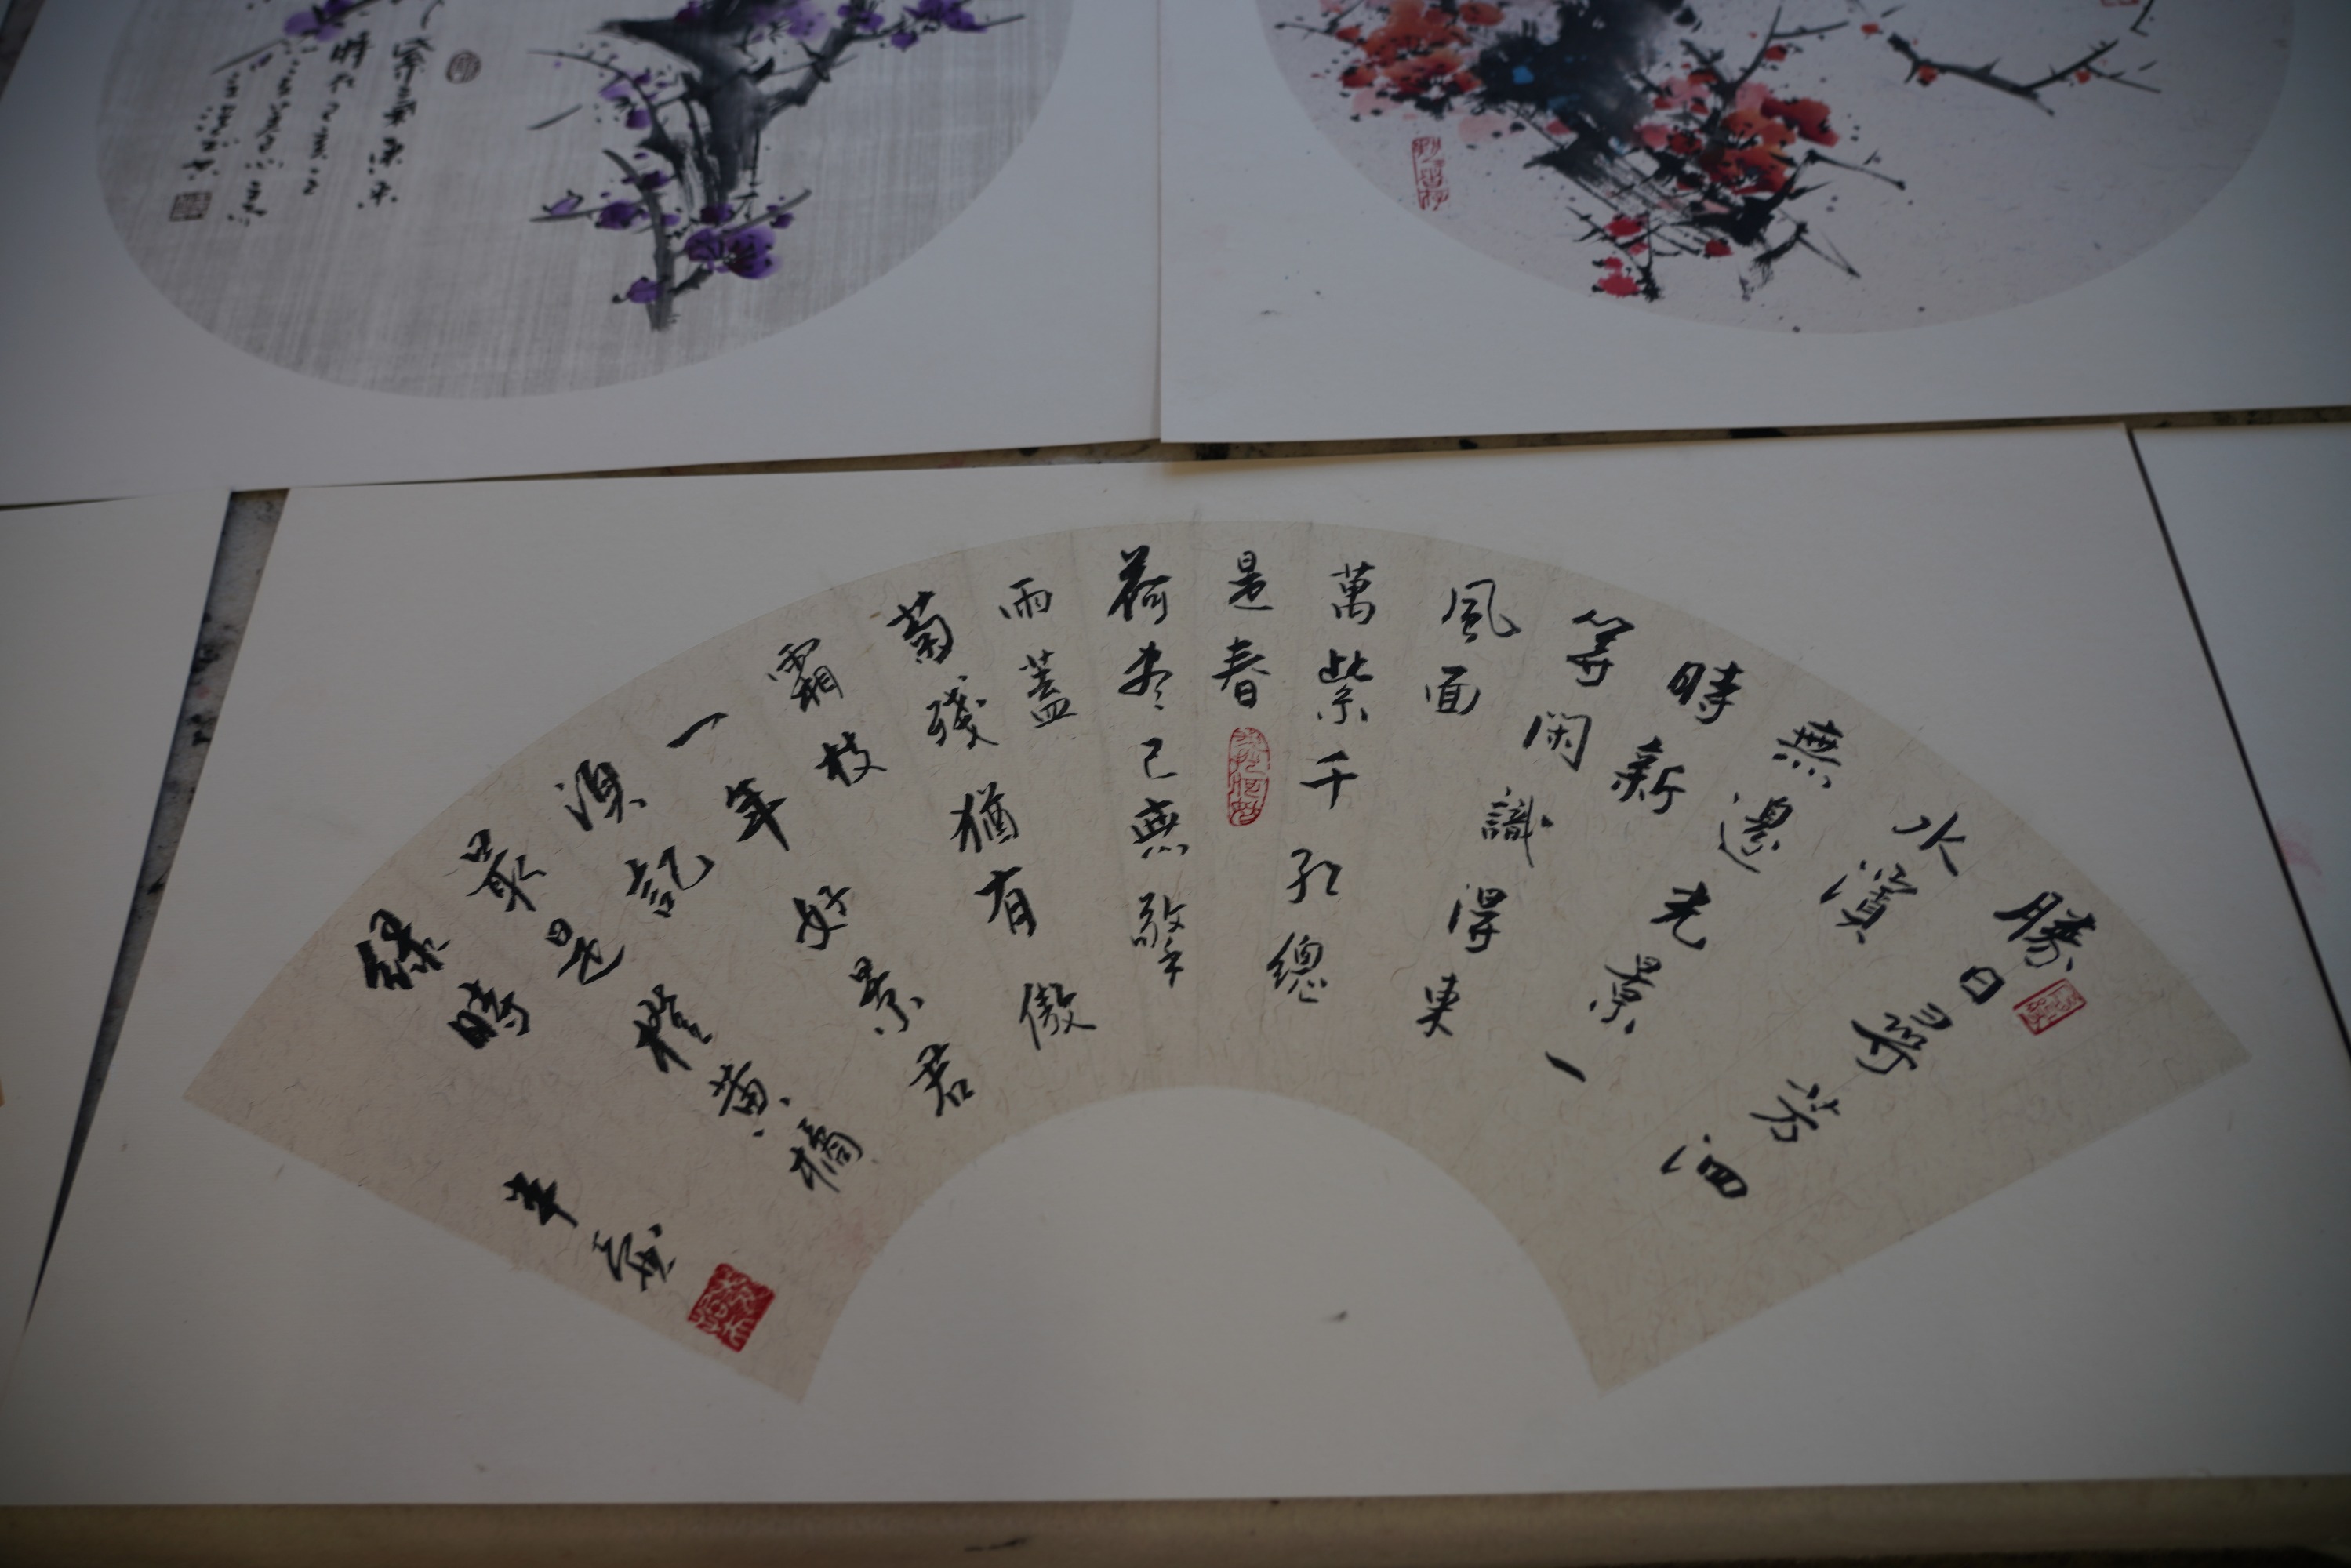 紫氣東來
勝日尋芳泗
水濱
無邊光景一
時新
等閑識得東
風面
萬紫千紅總
是春
荷盡已無擎
雨蓋
菊殘猶有傲
霜枝
一年好景君
須記
最是橙黃橘
綠時